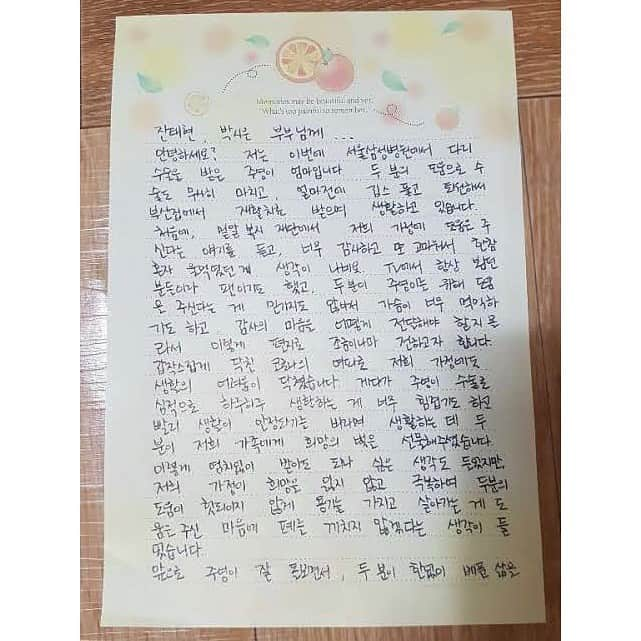 Memories may be beautiful and yet,
What's too painful to remember,
진태현, 박시은 부부님께 ...
안녕하세요? 저는 이번에 서울삼성병원에서 다리
수술을 받은 주영이 엄마입니다 두 분의 도움으로 수
술도 무사히 마치고, 얼마전에 깁스 풀고 퇴원해서
부산집에서 재활치료 받으며 생활하고 있습니다.
처음에, 밀알 복지 재단에서 저희 가정에 도움은 주
신다는 얘기를 듣고, 너무 감사하고 또 고마워서 한참
혼자 울먹였던게 생각이 나네요. TV에서 항상 봤던
분들이라 팬이기도 했고, 두 분이 주영이는 위해 도움
은 주신다는 게 믿기지도 않아서 가슴이 너무 먹먹하
기도 하고, 감사의 마음을 어떻게 전달해야 할지 몰
라서 이렇게 편지로 조금이나마 전하고자 합니다.
갑작스럽게 닥친 코로나의 여파로 저희 가정에도
생활의 어려움이 닥쳤습니다. 게다가 주영이 수술로
심적으로 하루하루 생활하는 게 너무 힘겹기도 하고
빨리 생활이 안정되기는 바라며 생활하는 데 두
분이 저희 가족에게 희망의 빛을 선물해주셨습니다.
이렇게 염치없이 받아도 되나 싶은 생각도 들었지만,
저희 가정이 희망을 잃지 않고 극복하며 두분의
도움이 헛되이지 않게 용기는 가지고 살아가는 게 도
움은 주신 마음에 폐는 끼치지 않겠다는 생각이 들
었습니다
앞으로 주영이 잘 돌보면서, 두 분이 한없이 베푼 삶을